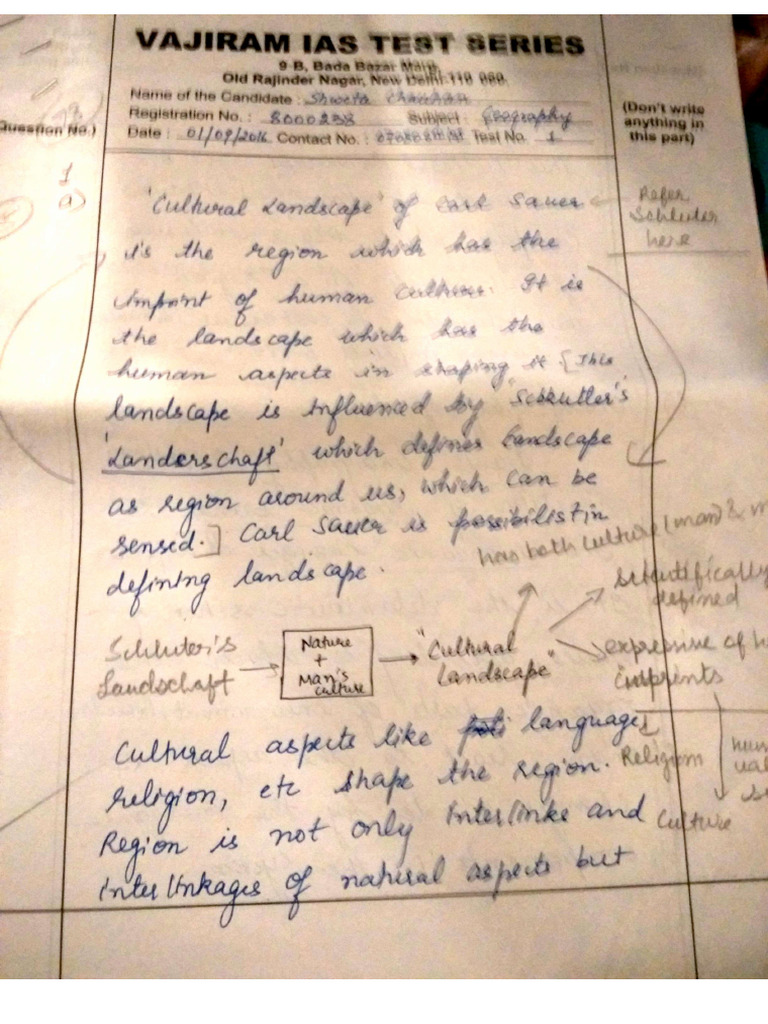 VAJIRAM IAS TEST SERIES
9-B, Bada Bazar Marg,
Old Rajinder Nagar, New Delhi-110 060
Name of the Candidate : Shweta Chauhan
Registration No. : 8000238 Subject : Geography
Date : 01/09/2016 Contact No. : Test No. 1
(Don't write
anything in
this part)
Question No.)
1
a)
'Cultural Landscape' of Carl Sauer
Refer
Schluter
here
is the region which has the
imprint of human culture. It is
the landscape which has the
human aspects in shaping it. [This
landscape is influenced by "Schkutler's
'Landerschaft' which defines landscape
as region around us, which can be
sensed.] Carl Sauer is possibilist in
defining landscape.
has both culture (man) &
scientifically
defined
Schluter's
Landschaft
Nature
+
Man's
culture
"Cultural
Landscape"
expressive of
imprints
Cultural aspects like languages,
religion, etc shape the region.
Religion
Region is not only interlinks and
Culture
interlinkages of natural aspects but